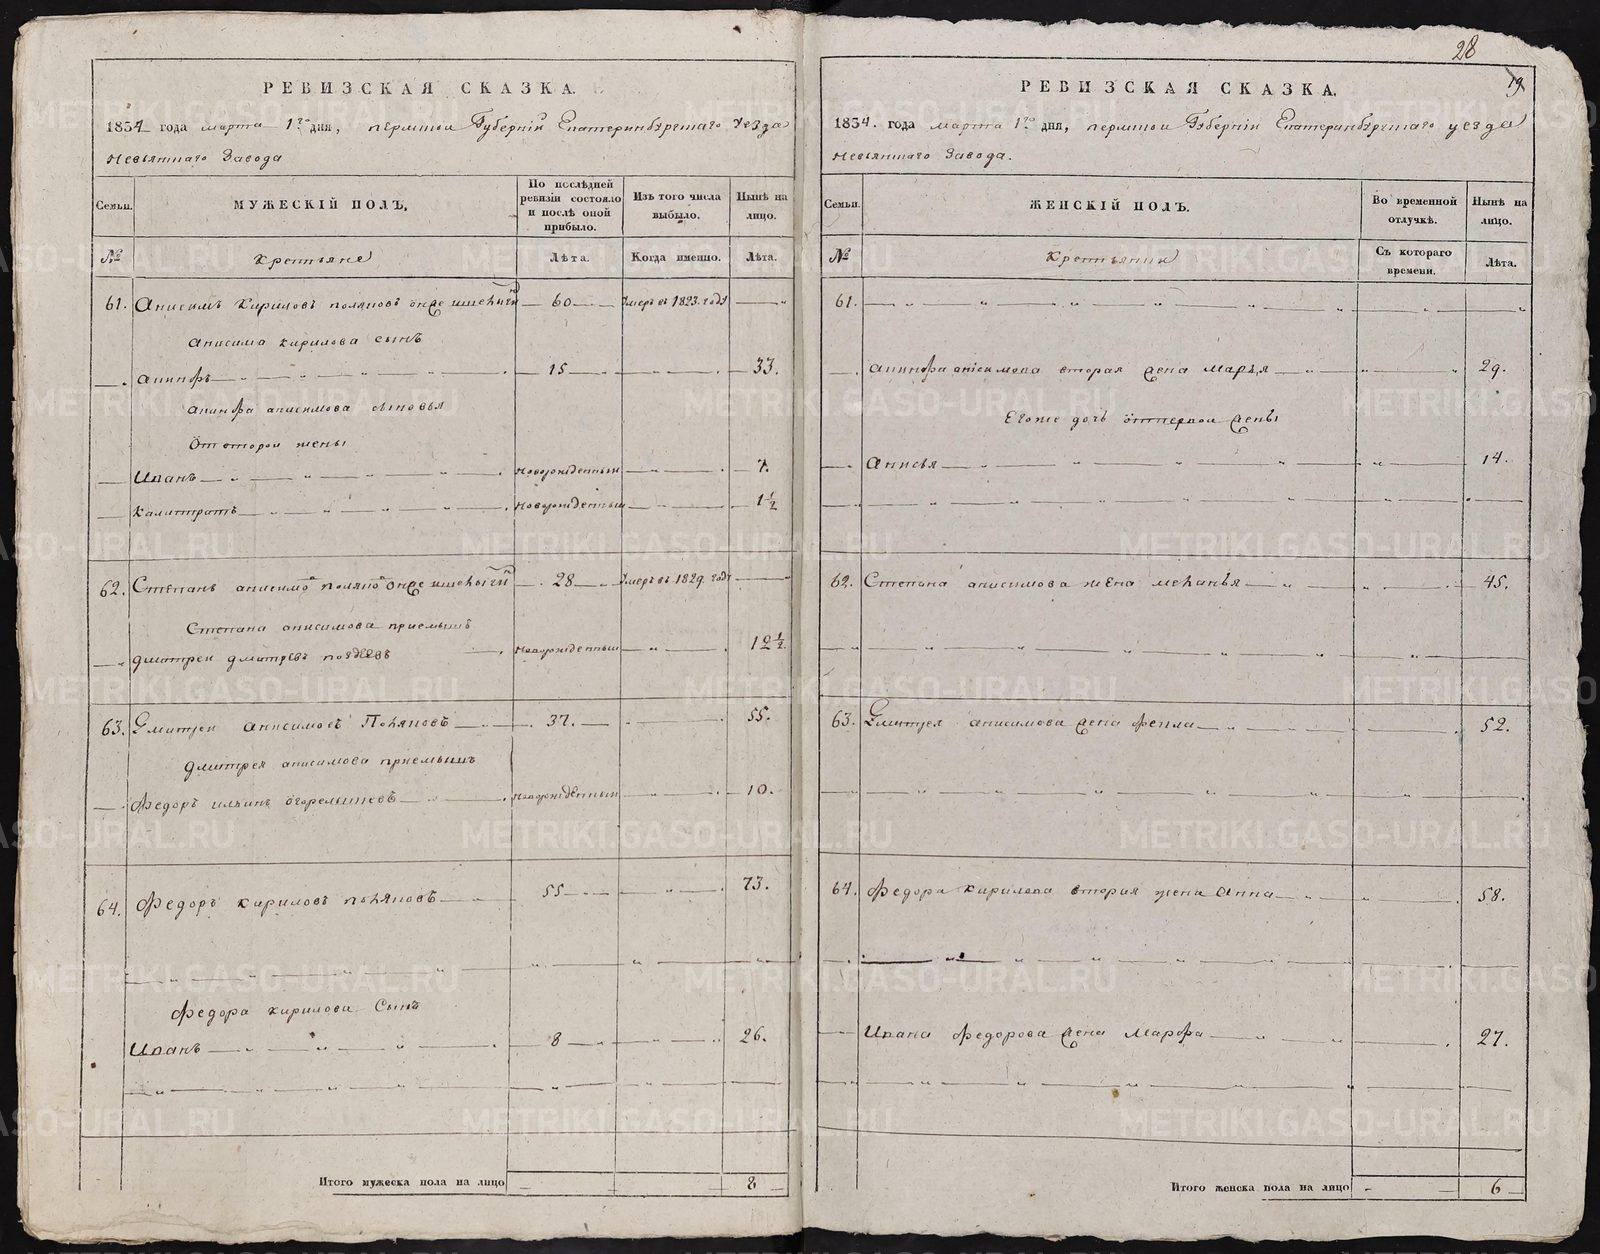 28
19
РЕВИЗСКАЯ СКАЗКА.
1834 года марта 1го дня, пермской Губернии Екатеринбургскаго уезда
Невьянскаго Завода
Семьи.
МУЖЕСКІЙ ПОЛЪ.
По послѣдней ревизіи состояло и послѣ оной прибыло.
Изъ того числа выбыло.
Нынѣ на лицо.
№
Крестьяне
Лѣта.
Когда именно.
Лѣта.
61. Анисимъ Кириловъ поляновъ 60 Умеръ в 1823. году
Анисима кирилова сынъ
15 33.
анисимова сыновья
От второй жены
Иванъ новорожденный 7.
Калистратъ новорожденный 1½
62. Степанъ анисимо 28 Умеръ в 1829. году
Степана анисимова приемышъ
дмитреи новорожденный 12½.
63. Дмитреи анисимовъ Поляновъ 37. 55.
дмитрея анисимова приемышъ
Федоръ ильинъ новорожденный 10.
64. Федоръ кириловъ поляновъ 55 73.
Федора кирилова Сынъ
Иванъ 8 26.
Итого мужеска пола на лицо 8
РЕВИЗСКАЯ СКАЗКА.
1834. года марта 1го дня, пермской Губернии Екатеринбургскаго уезда
Невьянскаго Завода.
Семьи.
ЖЕНСКІЙ ПОЛЪ.
Во временной отлучкѣ.
Нынѣ на лицо.
№
Съ котораго времени.
Лѣта.
61.
анисимова вторая жена марья 29.
Егоже дочь от первои жены
Анисья 14.
62. Степана анисимова жена меланья 45.
63. Дмитрея анисимова жена 52.
64. Федора кирилова вторая жена Анна 58.
Ивана федорова жена Марфа 27.
Итого женска пола на лицо 6
METRIKI.GASO-URAL.RU